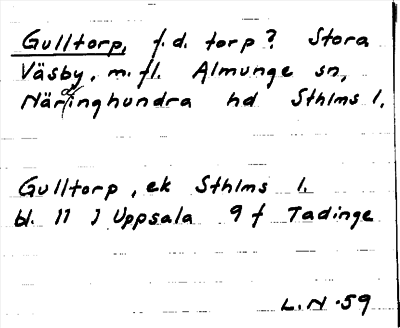 Gulltorp, f.d. torp? Stora
Väsby, m.fl. Almunge sn,
Närdinghundra hd Sthlms l.
Gulltorp, ek Sthlms l.
bl. 11 J Uppsala 9 f Tadinge
L.N -59